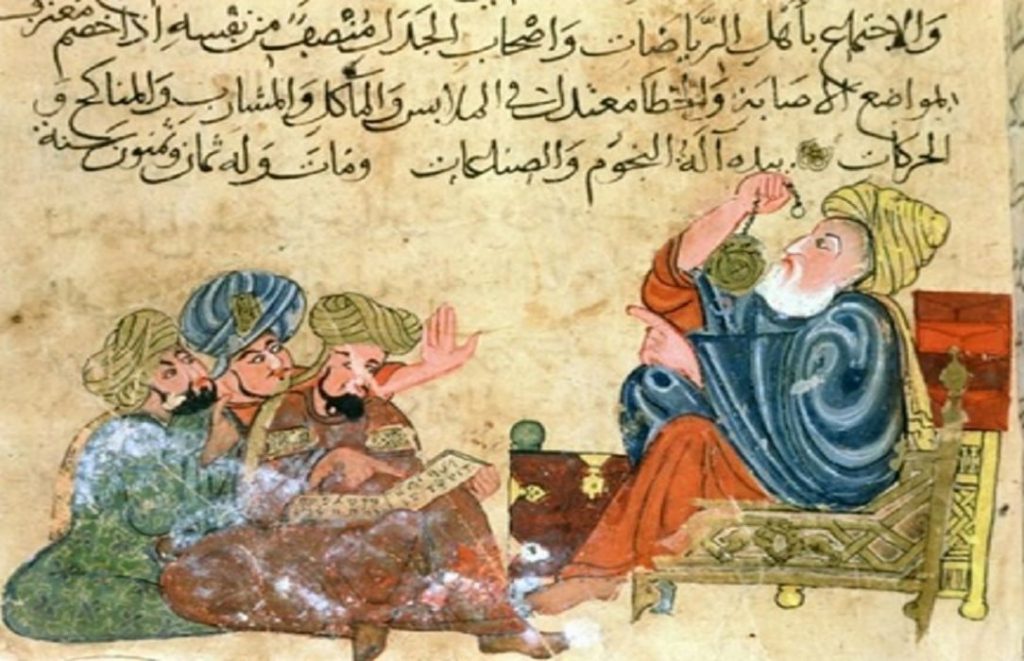 والاجتماع بأهل الرياضات واصحاب الجدل منصفً من نفسه اذا خصم معترف
بمواضع الاصابة والخطا معتدلا في الملابس والمآكل والمشارب والمناكح و
الحركات بيده آلة النجوم والصناعات ومات وله ثمان وثمنون سنة